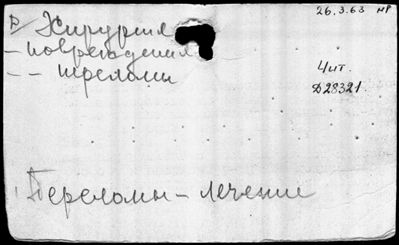 26.3.63 нр
В Хирургия
- повреждения
- - переломы
Чит.
Д28321.
Переломы - лечение